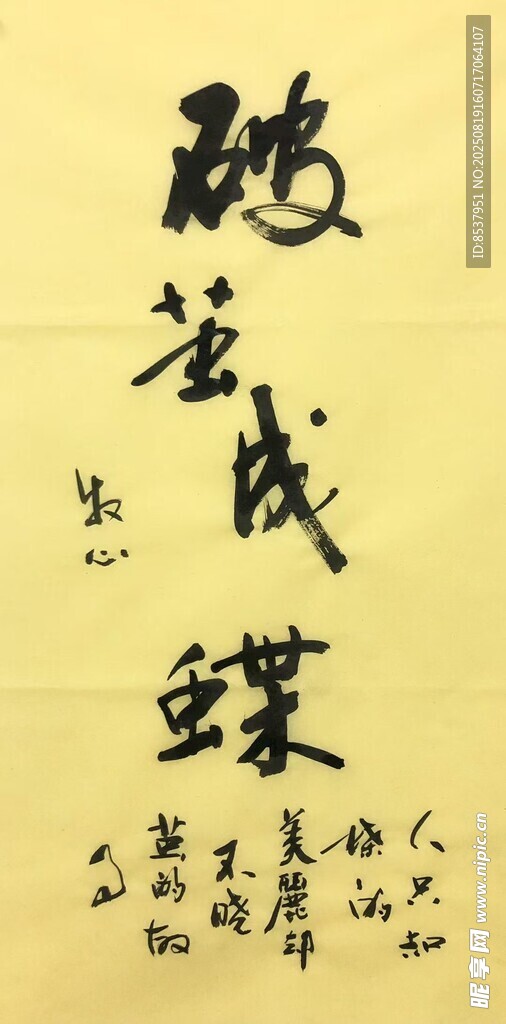 破茧成蝶
人只知
蝶的
美麗却
不晓
茧的故
事
牧心
ID:8537951 NO:20250819160717064107
昵享网 www.nipic.cn